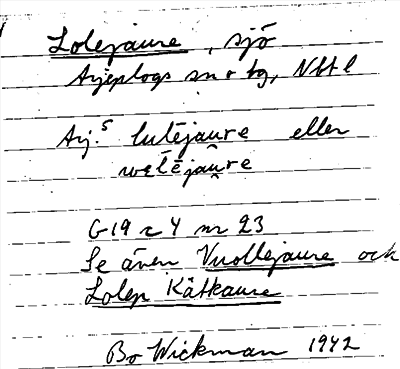 Lolejaure, sjö
Arjeplogs sn o tg, Nbtl
Arj.s lulējau̯re eller
wɛlējau̯re
G 19 z 4 nr 23
Se även Vuollejaure och
Lolep Kätkaure
Bo Wickman 1942